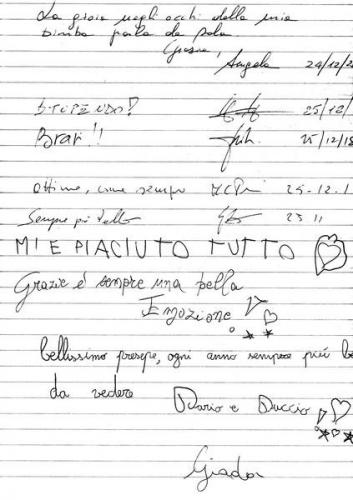 La gioia negli occhi della mia
bimba parla da sola
Grazie!
Angela 24/12/2
STUPENDO! 25/12/
Bravi!! 25/12/18
Ottimo, come sempre 25-12.1
Sempre più bello 23 11
MI E PIACIUTO TUTTO
Grazie é sempre una bella
Emozione
bellissimo presepe, ogni anno sempre più be
da vedere Dario e Duccio
Giada